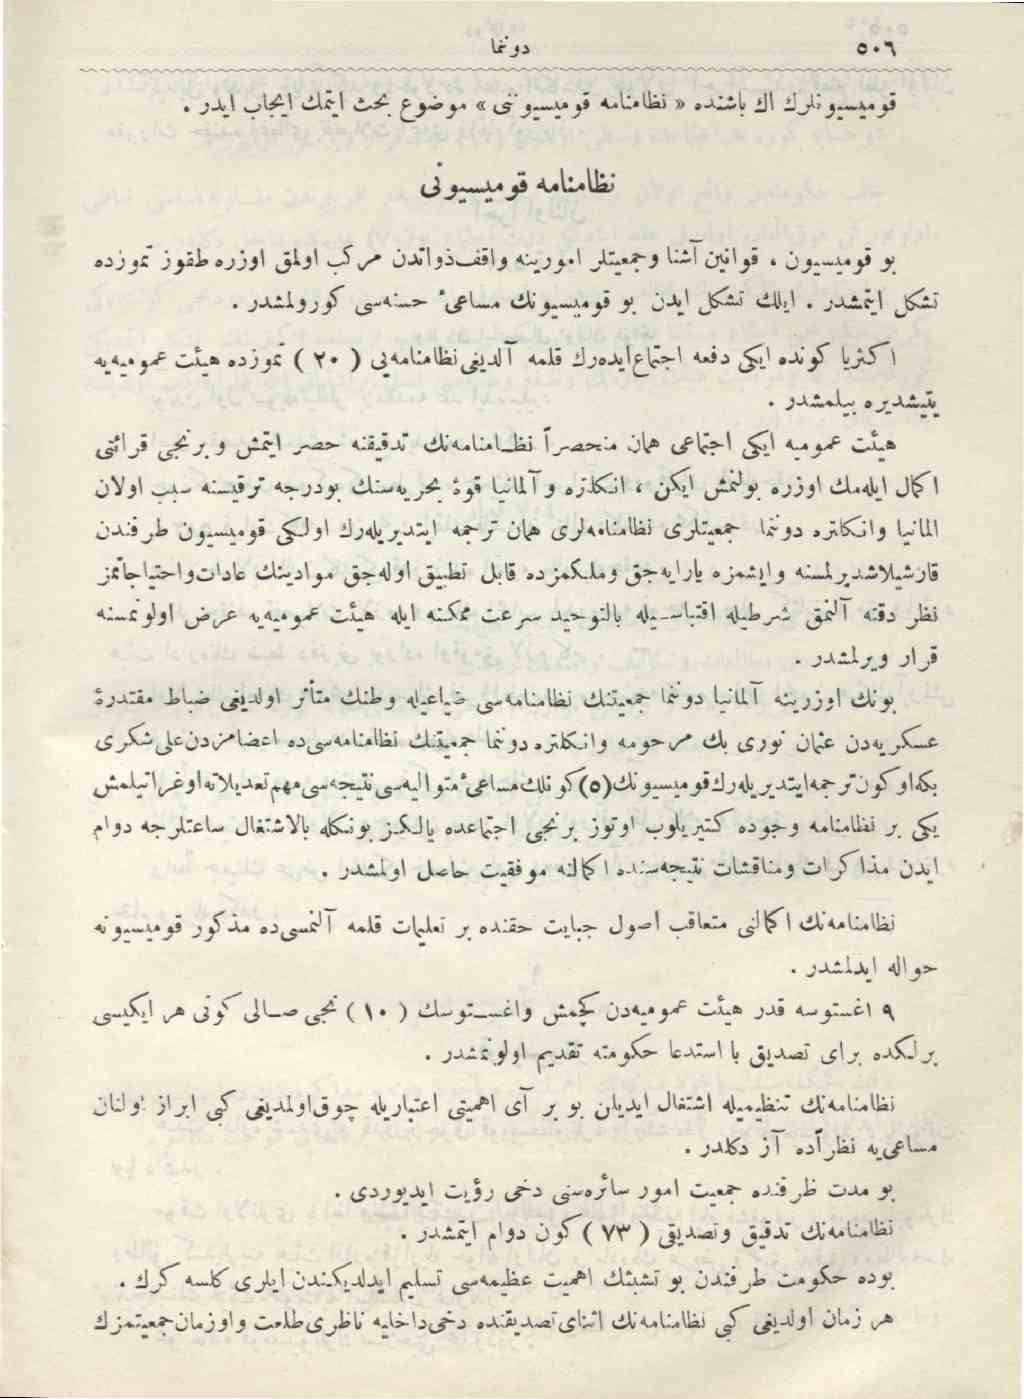 ٥٠٦
دوننما
قوميسيونلرك اك باشنده « نظامنامه قوميسيوننی » موضوع بحث ايتمك ايجاب ايدر .
نظامنامه قوميسيونی
بو قوميسيون ، قوانين آشنا وجمعيتلر امورينه واقف‌ذواتدن مركب اولمق اوزره طقوز تموزده
تشكل ايتمشدر . ايلك تشكل ايدن بو قوميسيونك مساعیٔ حسنه‌سی كورولمشدر .
اكثريا كونده ايكی دفعه اجتماع‌ايده‌رك قلمه آلديغی‌نظامنامه‌يی ( ٢٠ ) تموزده هيئت عموميه‌يه
يتيشديره بيلمشدر .
هيئت عموميه ايكی اجتماعی همان منحصراً نظامنامه‌نك تدقيقنه حصر ايتمش و برنجی قرائتی
اكمال ايله‌مك اوزره بولنمش ايكن ، انكلتره و آلمانيا قوهٔ بحريه‌سنك بودرجه ترقيسنه سبب اولان
المانيا وانكلتره دوننما جمعيتلری نظامنامه‌لری همان ترجمه ايتديريله‌رك اولكی قوميسيون طرفندن
قارشيلاشديرلمسنه وايشمزه يارايه‌جق وملكمزده قابل تطبيق اوله‌جق موادينك عادات‌واحتياجاتمز
نظر دقته آلنمق شرطيله اقتباسيله بالتوحيد سرعت ممكنه ايله هيئت عموميه‌يه عرض اولونمسنه
قرار ويرلمشدر .
بونك اوزرينه آلمانيا دوننما جمعيتنك نظامنامه‌سی ضياعيله وطنك متأثر اولديغی ضباط مقتدرهٔ
عسكريه‌دن عثمان نوری بك مرحومه وانكلتره دوننما جمعيتنك نظامنامه‌سی‌ده اعضامزدن‌علی‌شكری
بكه‌اوكون‌ترجمه‌ايتديريله‌رك‌قوميسيونك(٥)كونلك‌مساعیٔ متواليه‌سی نتيجه‌سی‌مهم‌تعديلاته‌اوغراتيلمش
يكی بر نظامنامه وجوده كتيريلوب اوتوز برنجی اجتماعده يالكز بونكله بالاشتغال ساعتلرجه دوام
ايدن مذاكرات ومناقشات نتيجه‌سنده اكمالنه موفقيت حاصل اولمشدر .
نظامنامه‌نك اكمالنی متعاقب اصول جبايت حقنده بر تعليمات قلمه آلنمسی‌ده مذكور قوميسيونه
حواله ايدلمشدر .
٩ اغستوسه قدر هيئت عموميه‌دن كچمش واغستوسك ( ١٠ ) نجی صالی كونی هر ايكيسی
برلكده برای تصديق با استدعا حكومته تقديم اولونمشدر .
نظامنامه‌نك تنظيميله اشتغال ايديلن بو بر آی اهميتی اعتباريله چوق‌اولمديغی كبی ابراز اولنان
مساعی‌يه نظراًده آز دكلدر .
بو مدت ظرفنده جمعيت امور سائره‌سنی دخی رؤيت ايديوردی .
نظامنامه‌نك تدقيق وتصديقی ( ٧٣ ) كون دوام ايتمشدر .
بوده حكومت طرفندن بو تشبثك اهميت عظيمه‌سی تسليم ايدلديكندن ايلری كلسه كرك .
هر زمان اولديغی كبی نظامنامه‌نك اثنای‌تصديقنده دخی‌داخليه ناظری‌طلعت واوزمان‌جمعيتمزك